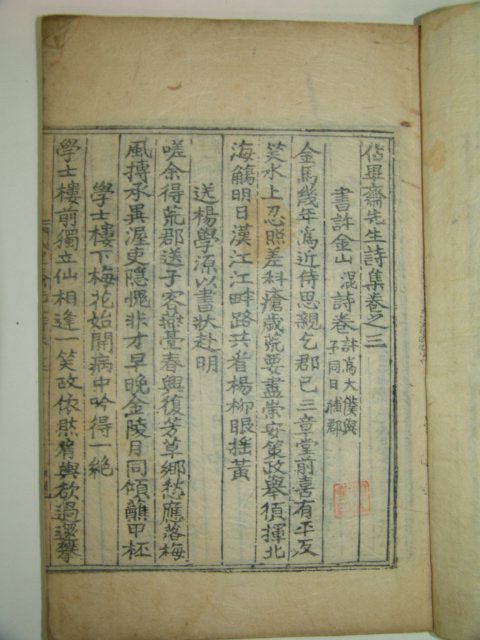 佔畢齋先生詩集卷之三
書許金山混詩卷 許爲大僕與子同日補郡
金馬幾年爲近侍思親乞郡已三章堂前喜有平反
笑水上忍照差科瘡歲荒要盡崇安策政擧須揮北
海觴明日漢江江畔路共看楊柳眼揺黃
送楊學源以書狀赴明
嗟余得荒郡送子客燕臺春興復芳草鄕愁應落梅
風摶承異渥吏隱愧非才早晚金陵月同傾蘸甲杯
學士樓下梅花始開病中吟得一絶
學士樓前獨立仙相逢一笑政依然肩輿欲過還攀